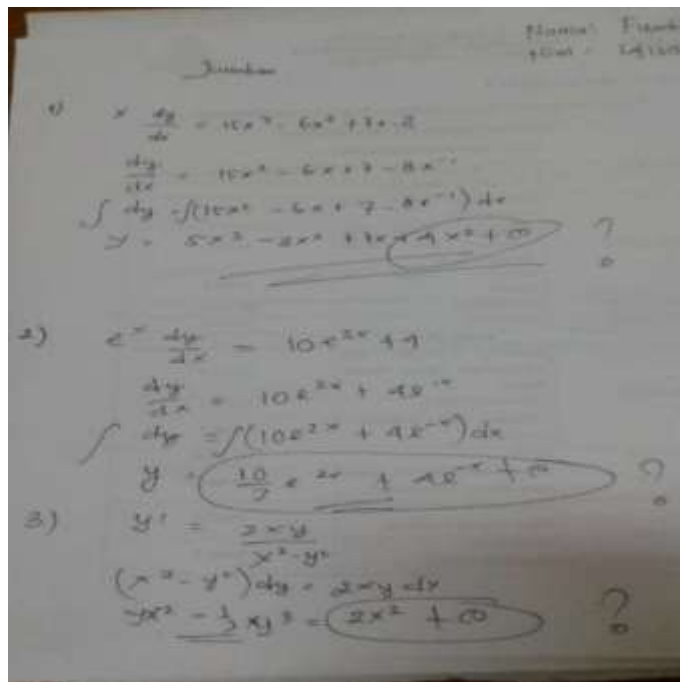 Jawaban
1) x dy/dx = 15x³ - 6x² + 7x - 8
dy/dx = 15x² - 6x + 7 - 8x⁻¹
∫ dy = ∫(15x² - 6x + 7 - 8x⁻¹) dx
y = 5x³ - 3x² + 7x + 4x² + C ?
2) eˣ dy/dx = 10e²ˣ + 4
dy/dx = 10e²ˣ + 4e⁻ˣ
∫ dy = ∫(10e²ˣ + 4e⁻ˣ) dx
y = 10/2 e²ˣ + 4e⁻ˣ + C ?
3) y' = 2xy / x² - y²
(x² - y²) dy = 2xy dx
yx² - 1/3 xy³ = 2x² + C ?